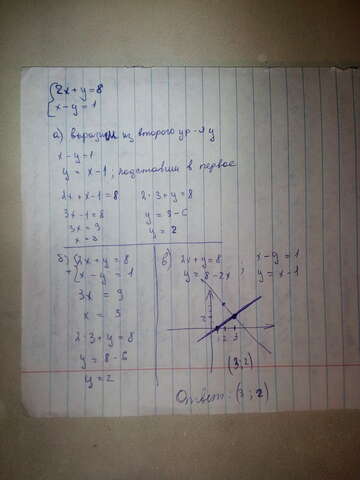 2x+y=8
x-y=1
а) выразим из второго ур-я у
x-y=1
y = x-1; подставим в первое
2x+x-1=8
3x-1=8
3x=9
x=3
2·3+y=8
y=8-6
y=2
б) 2x+y=8
+ x-y=1
3x = 9
x = 3
2·3+y=8
y=8-6
y=2
в) 2x+y=8; x-y=1
y=8-2x y=x-1
2
1 2 3
(3;2)
Ответ: (3;2)